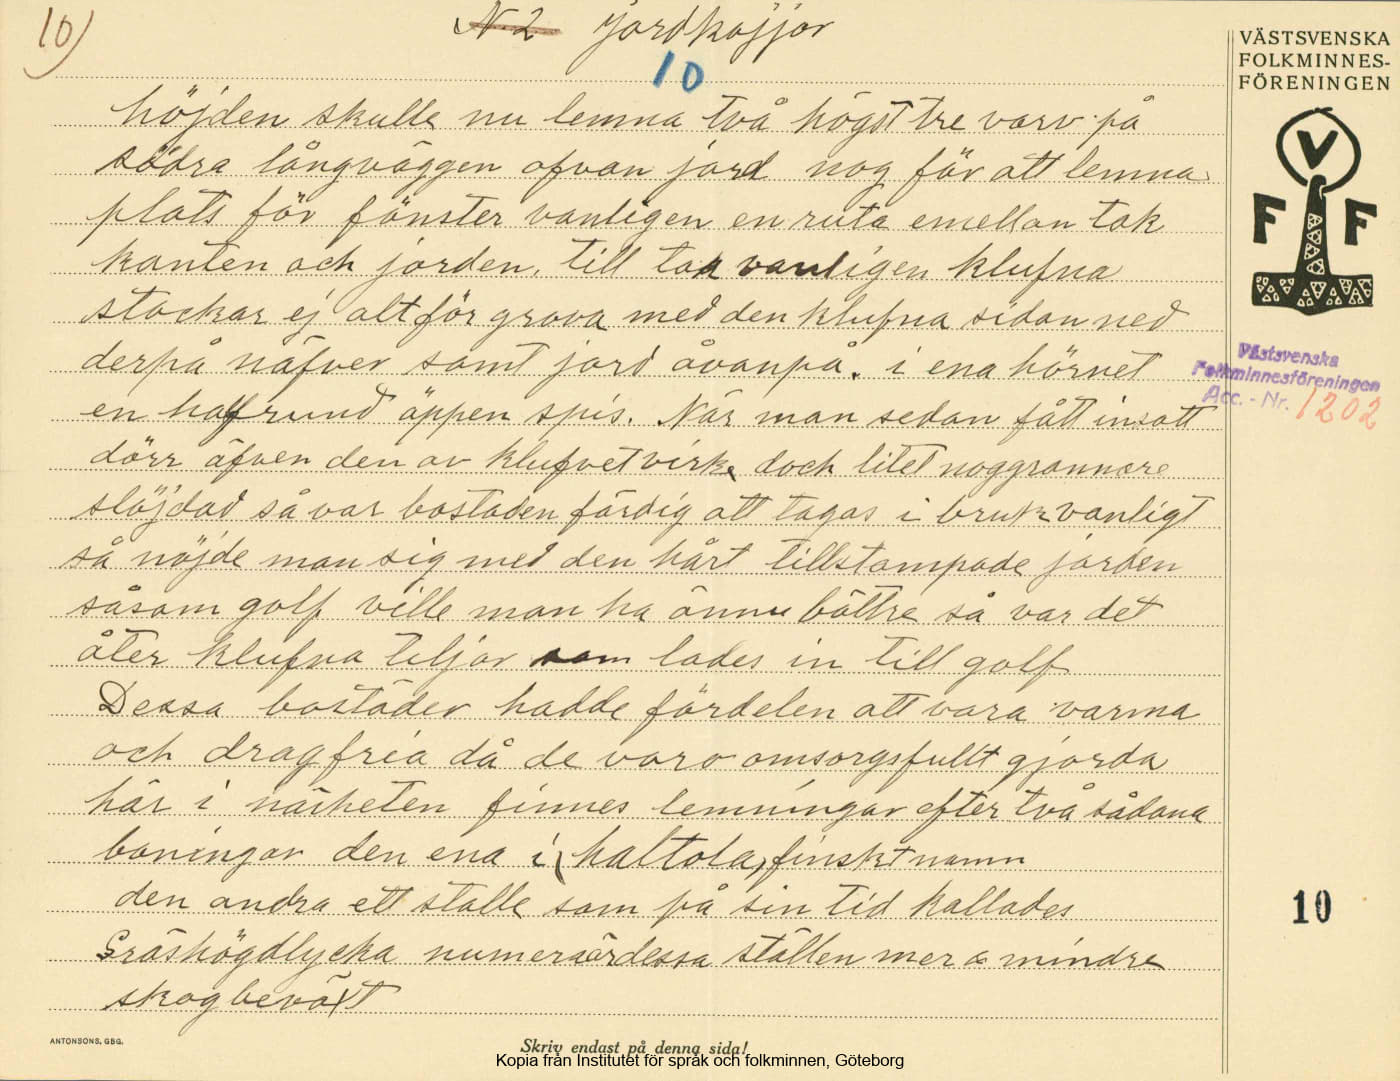 10)
N 2 Jordkojjor
10
höjden skulle nu lemna två högst tre varv på
södra långväggen ofvan jord nog för att lemna
plats för fönster vanligen en ruta emellan tak
kanten och jorden. till tak vanligen klufna
stockar ej altför grova med den klufna sidan ned
derpå näfver samt jord åvanpå. i ena hörnet
en halfrund öppen spis. När man sedan fått insatt
dörr äfven den av klufvet virke doch litet noggrannare
slöjdad så var bostaden färdig att tagas i bruk vanligt
så nöjde man sig med den hårt tillstampade jorden
såsom golf ville man ha ännu bättre så var det
åter klufna tiljor som lades in till golf
Dessa bostäder hadde fördelen att vara varma
och dragfria då de voro omsorgsfullt gjorda
här i närheten finnes lemningar efter två sådana
boningar den ena i (kaltola) finskt namn
den andra ett ställe som på sin tid kallades
Gräshögdlycka numera är dessa ställen mer o mindre
skogbeväxt
VÄSTSVENSKA
FOLKMINNES-
FÖRENINGEN
V
F F
Västsvenska
Folkminnesföreningen
Acc. - Nr. 1202
10
ANTONSONS, GBG.
Skriv endast på denna sida!
Kopia från Institutet för språk och folkminnen, Göteborg